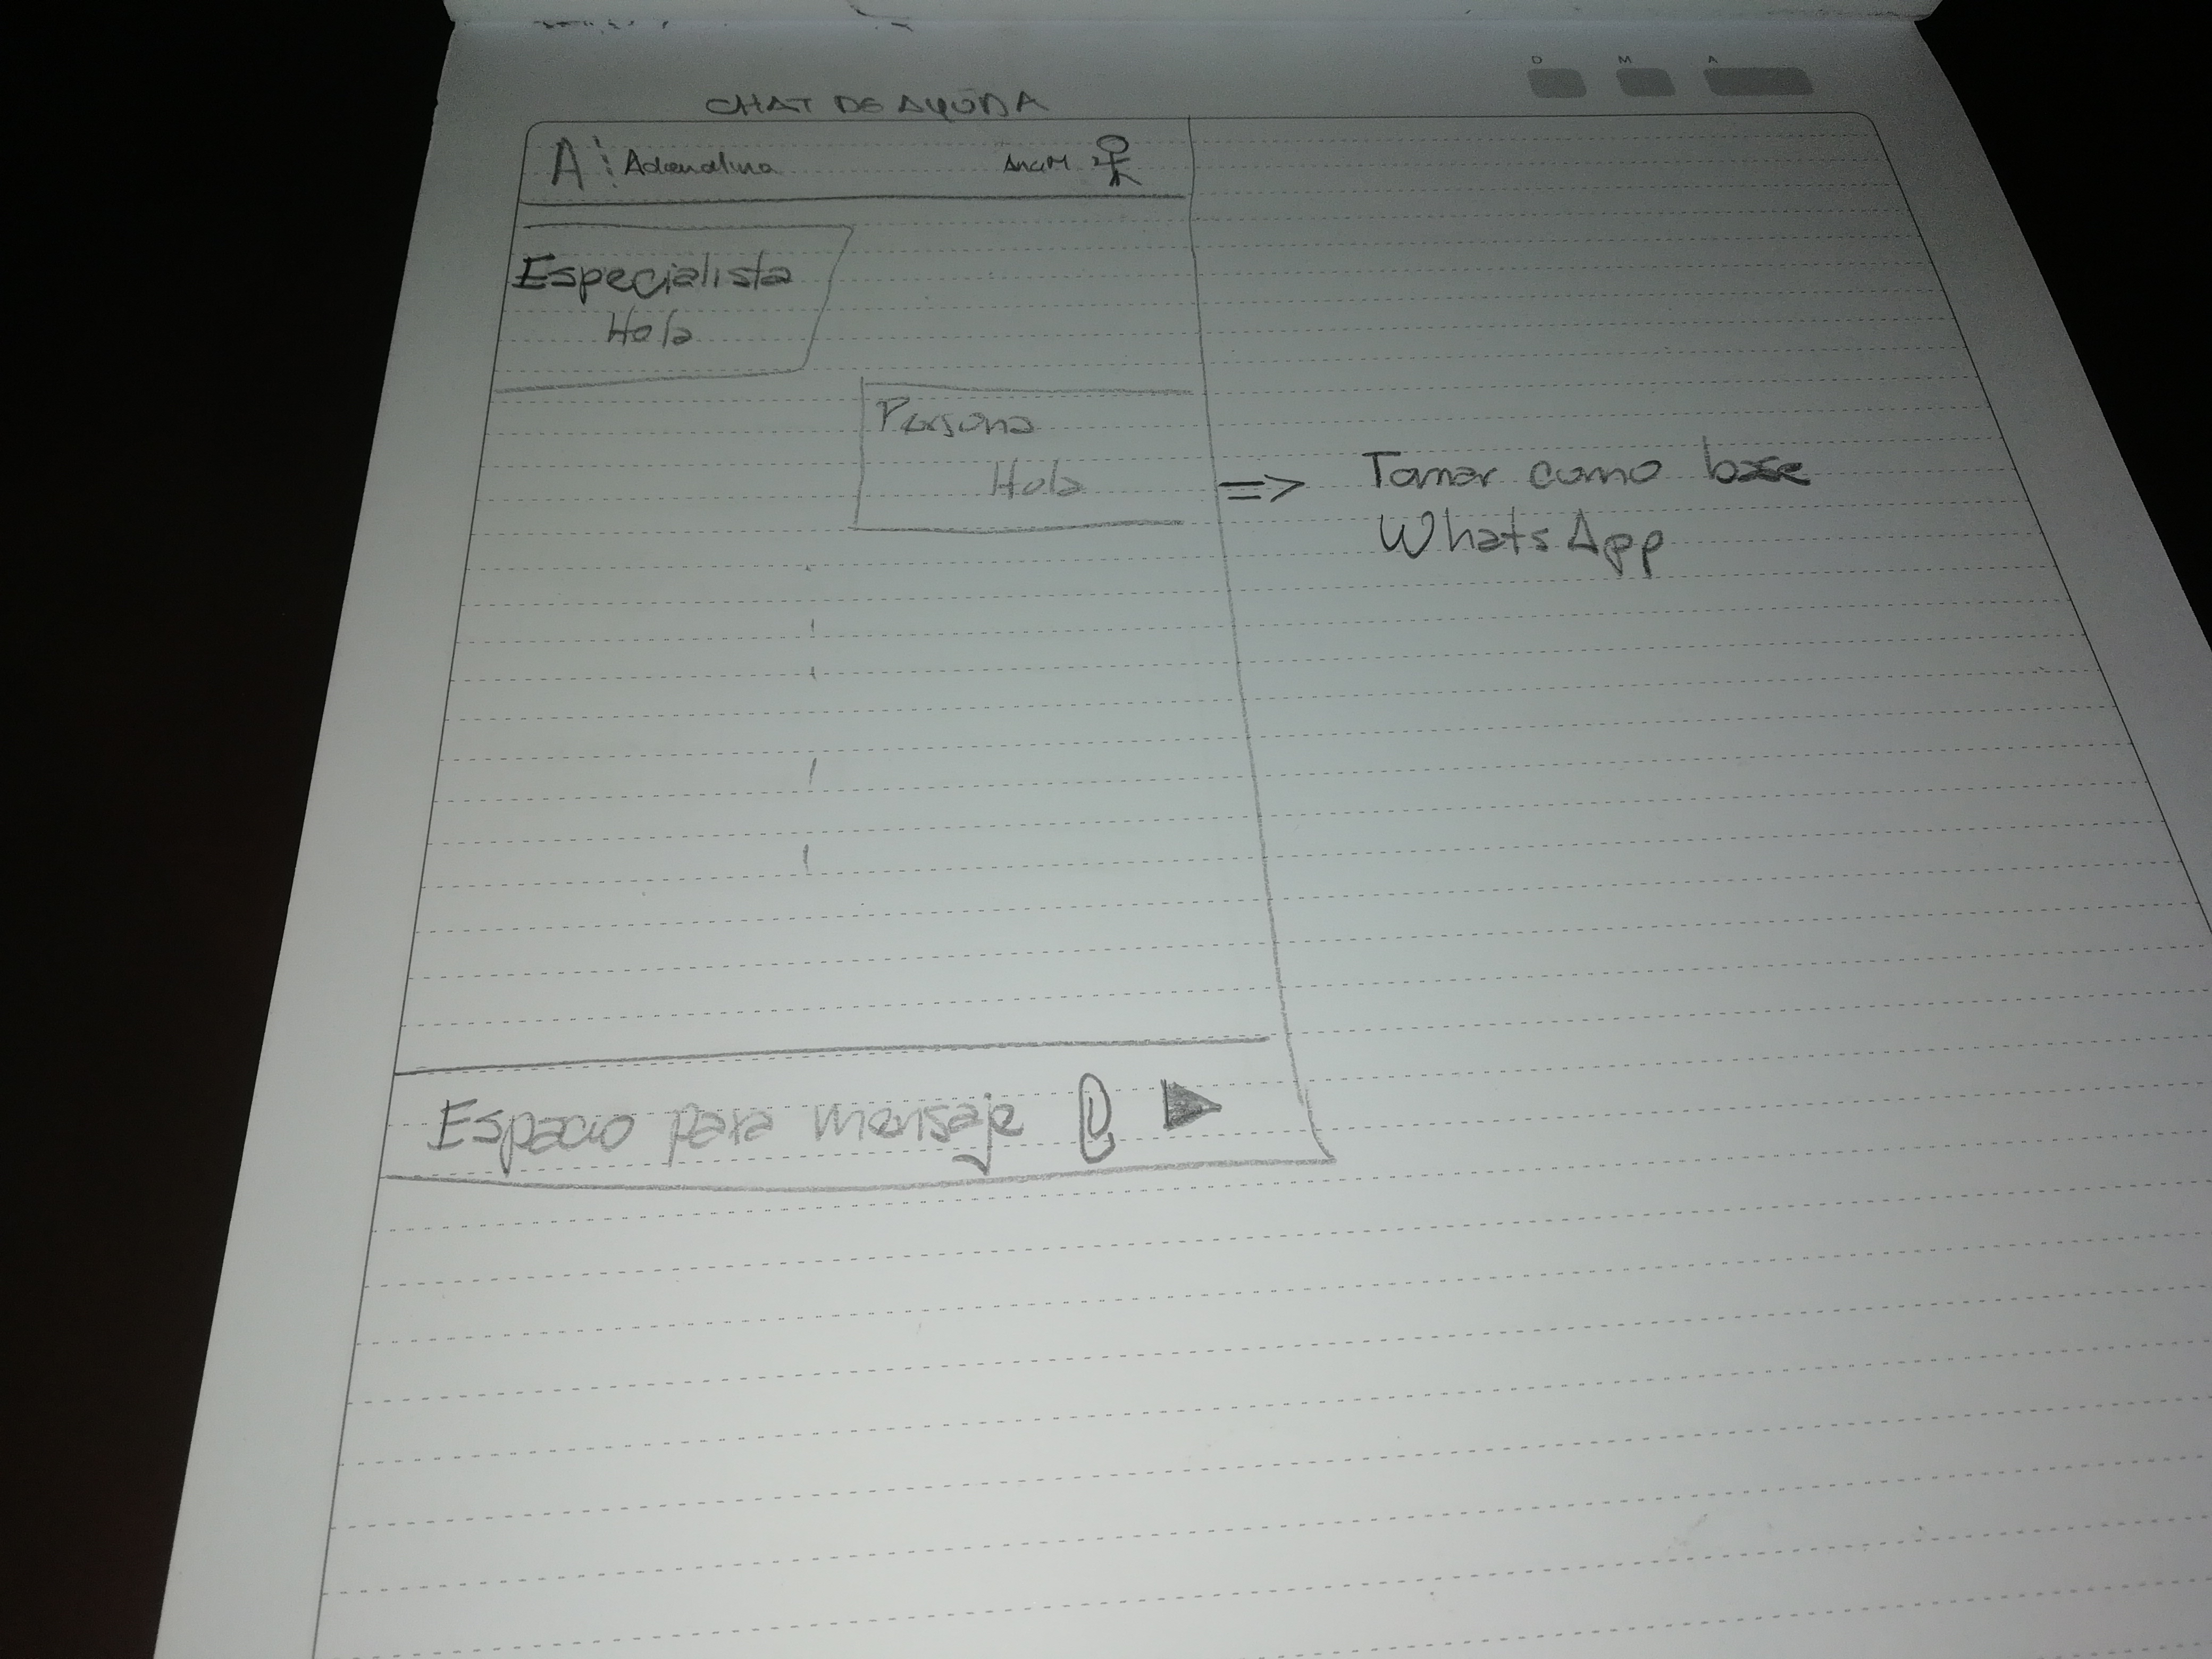 D M A
CHAT DE AYUDA
A Adrenalina AnaM
Especialista
Hola
Persona
Hola
=> Tomar como base
WhatsApp
Espacio para mensaje